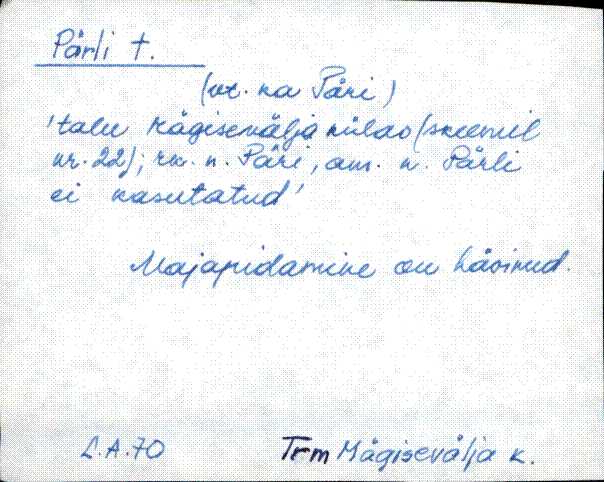 Pärli t.
(vt. ka Päri)
'talu Mägisevälja külas (skeemil
nr. 22); rk. n. Päri, am. n. Pärli
ei kasutatud'
Majapidamine on hävinud.
L.A.70 Trm Mägisevälja k.